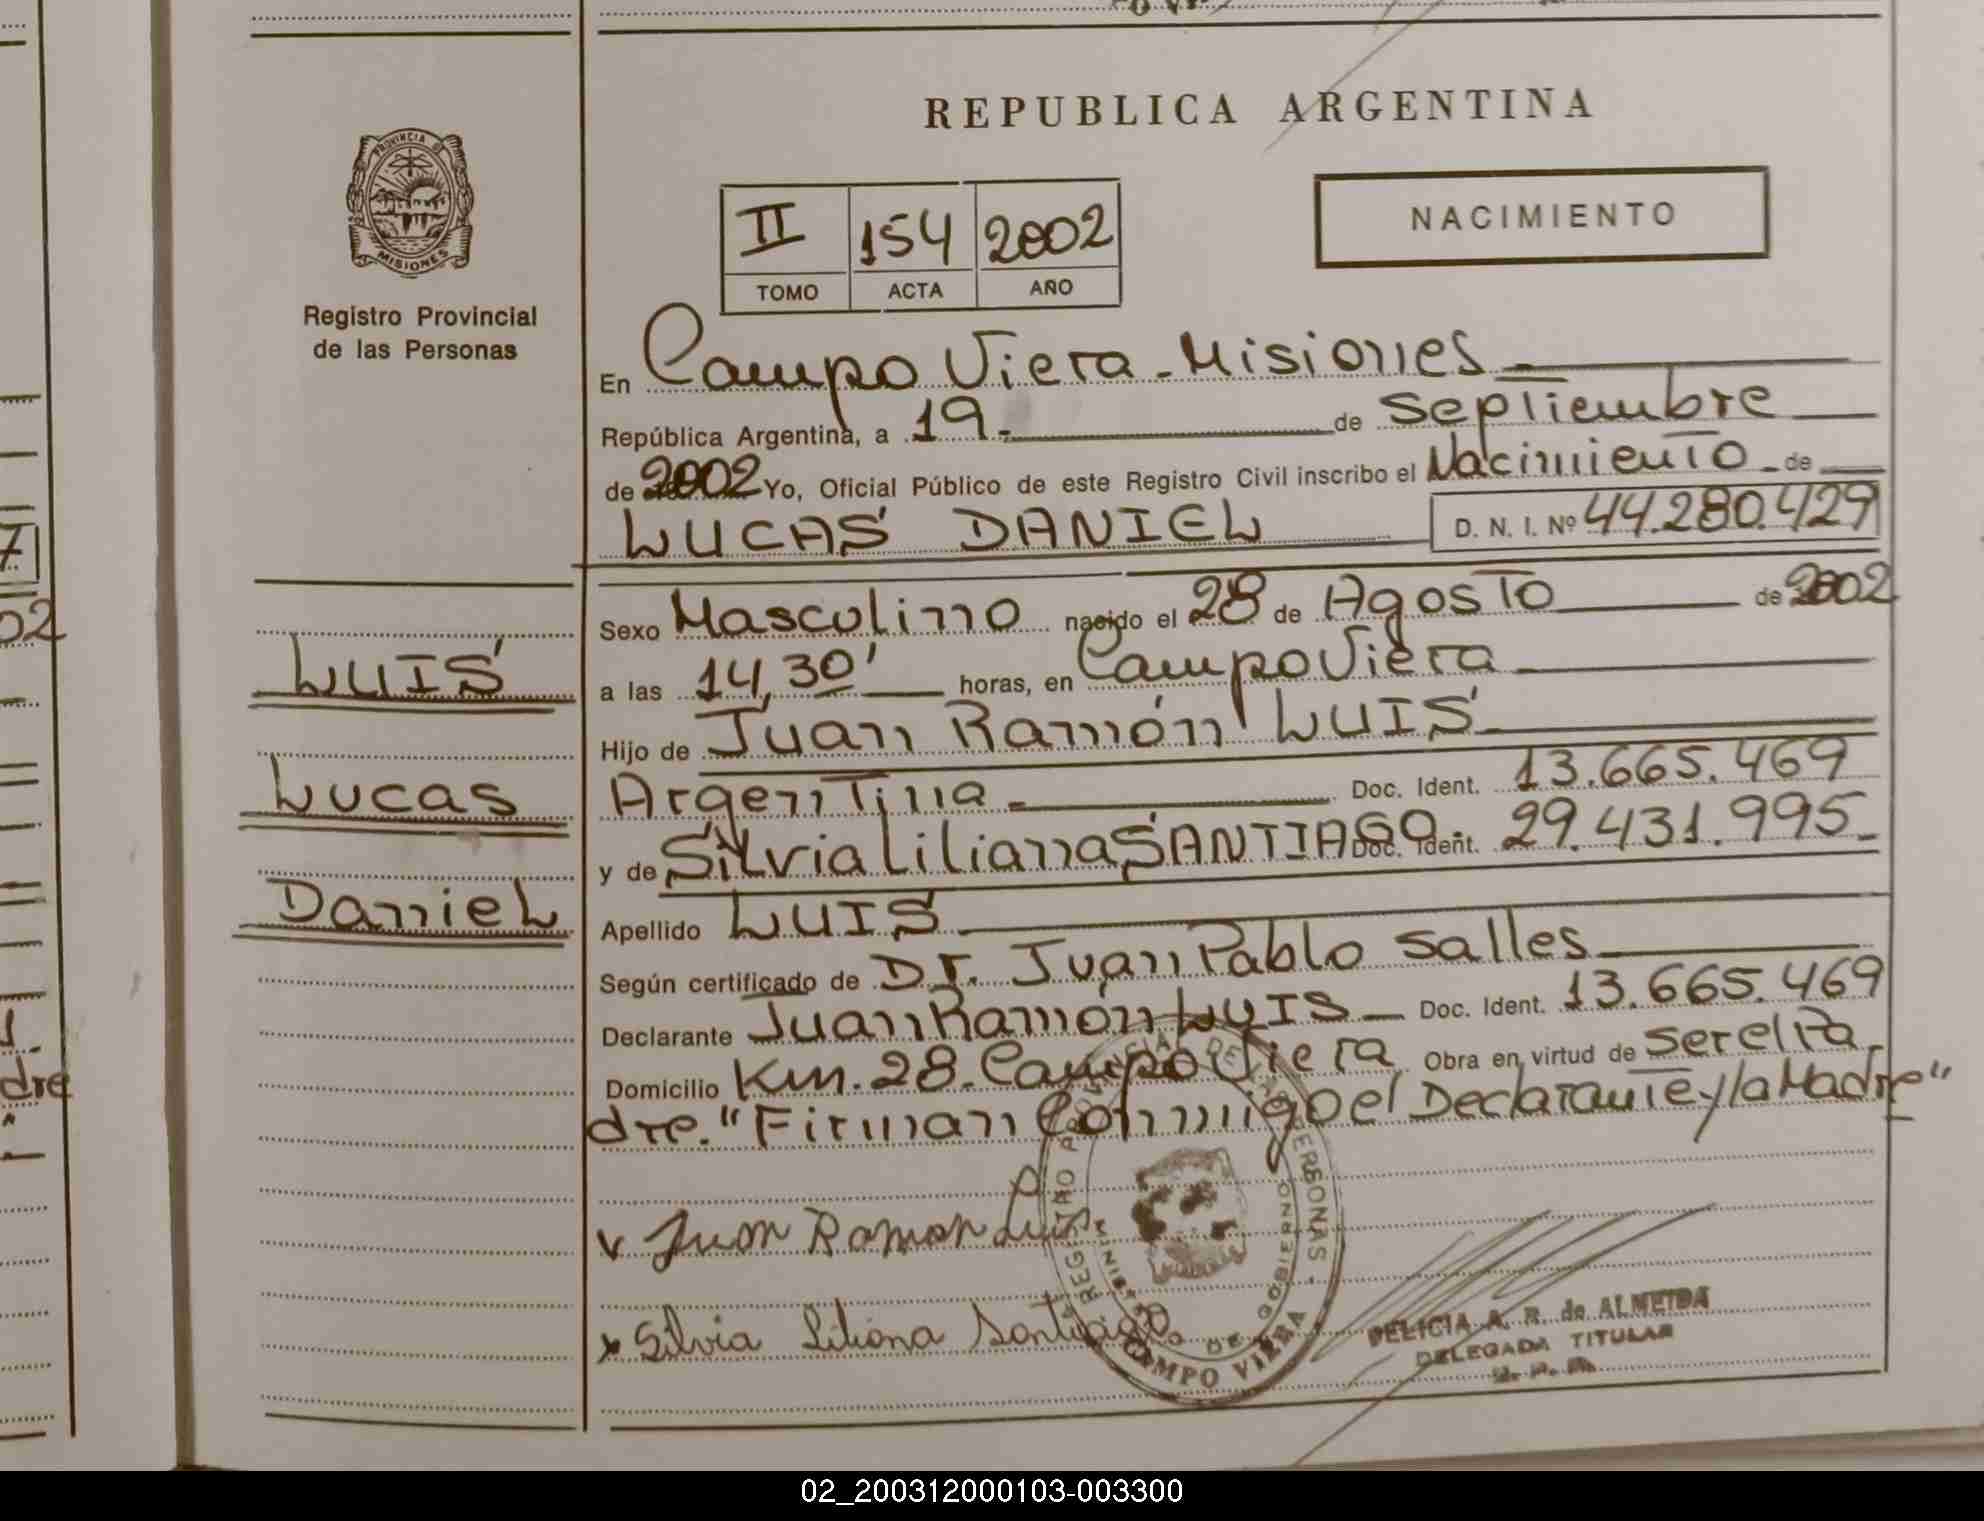 REPUBLICA ARGENTINA
PROVINCIA DE
MISIONES
Registro Provincial
de las Personas
II 154 2002
TOMO ACTA AÑO
NACIMIENTO
En Campo Viera - Misiones
República Argentina, a 19 de Septiembre
de 2002 Yo, Oficial Público de este Registro Civil inscribo el Nacimiento de
LUCAS DANIEL D. N. I. Nº 44.280.429
Sexo Masculino nacido el 28 de Agosto de 2002
LUIS
a las 14,30' horas, en Campo Viera
Hijo de Juan Ramón LUIS
Lucas
Argentina Doc. Ident. 13.665.469
y de Silvia Liliana SANTIAGO Doc. Ident. 29.431.995
Daniel
Apellido LUIS
Según certificado de Dr. Juan Pablo Salles
Declarante Juan Ramón LUIS Doc. Ident. 13.665.469
Domicilio Km. 28. Campo Viera Obra en virtud de ser el Pa
dre. "Firman Conmigo el Declarante y la Madre"
Juan Ramon Luis
Silvia Liliana Santiago
REGISTRO PROVINCIAL DE LAS PERSONAS
DE GOBIERNO
CAMPO VIERA
DELICIA A. R. de ALMEIDA
DELEGADA TITULAR
7
02
dre
02_200312000103-003300